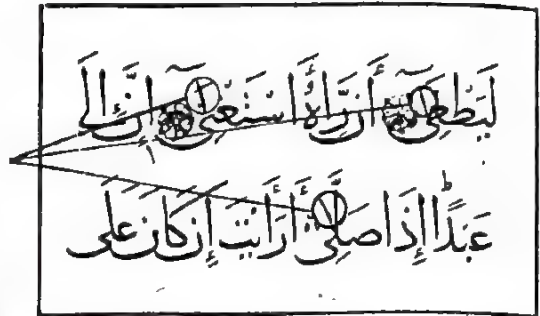 لَيَطْغَىٰٓ أَن رَّءَاهُ ٱسْتَغْنَىٰٓ إِنَّ إِلَىٰ
عَبْدًا إِذَا صَلَّىٰٓ أَرَءَيْتَ إِن كَانَ عَلَى